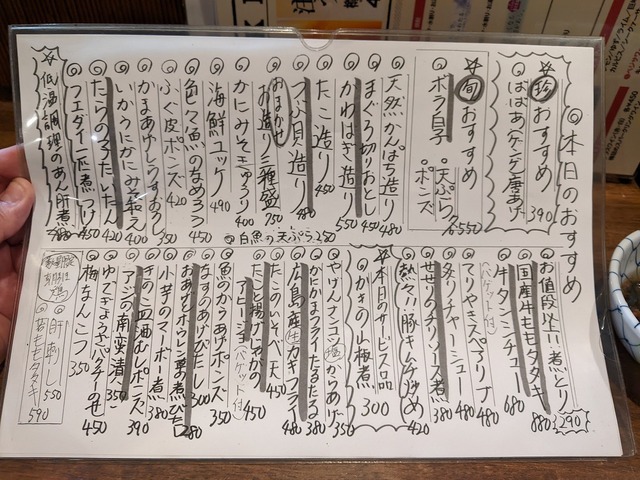 ◎本日のおすすめ
珍 おすすめ
◎ばばあべんべん唐あげ 390
旬 おすすめ
◎ボラ白子 ◦天ぷら ◦ポンズ 各550
◎天然かんぱち造り 480
◎まぐろ切りおとし 450
◎かわはぎ造り 550
◎たこ造り 450
◎つぶ貝造り 480
おまかせ
◎お造り三種盛 750
◎かにみそきゅうり 400
◎海鮮ユッケ 490
◎色々魚のなめろう 450
◎ふぐ皮ポンズ 420
◎かまあげしらすおろし 350
◎いかうにかにみそ和え 400
◎たらの子たいたん 420
◎フエダイ一匹煮つけ 450
低温調理のあん肝煮
◎白魚の天ぷら 250
◎お値段以上!!煮とり 290
◎国産牛ももタタキ 880
◎牛タンシチュー 680
バケット付
◎てりやきスペアリブ 480
◎炙りチャーシュー 480
◎せせりチリソース煮 380
◎熱々!!豚キムチ炒め 420
本日のサービス品
◎かきの山椒煮 300
◎やげんナンコツ塩からあげ 350
◎かにかまフライたるたる 380
◎広島産生カキフライ 480
◎たこのいそべ天 450
◎たこと揚げじゃがのアヒージョ バケット付 450
◎魚のかわあげポンズ 350
◎なすのあげびたし 300
◎おあげとホーレン草煮びたし 280
◎小芋のマーボー煮 380
◎きのこ皿酒むしポンズ 390
◎アジの南蛮漬 350
◎ゆでぎょうざバッチーのせ 450
◎梅なんこつ 350
◦肝刺し 550
◦若ももタタキ 590